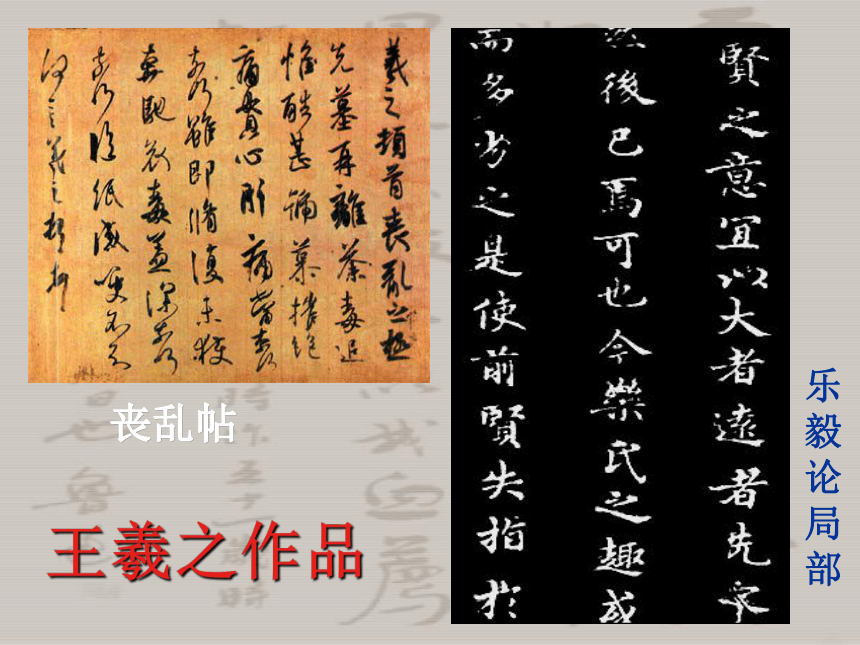 羲之頓首喪亂之極
先墓再離荼毒追
惟酷甚號慕摧絕
痛貫心肝痛當奈何
奈何雖即脩復未獲
奔馳哀毒益深奈何
奈何臨紙感哽不知
何言羲之頓首頓首
丧乱帖
王羲之作品
賢之意宜以大者遠者先之
然後已焉可也今樂氏之趣或
而多劣之是使前賢失指於
乐毅论局部